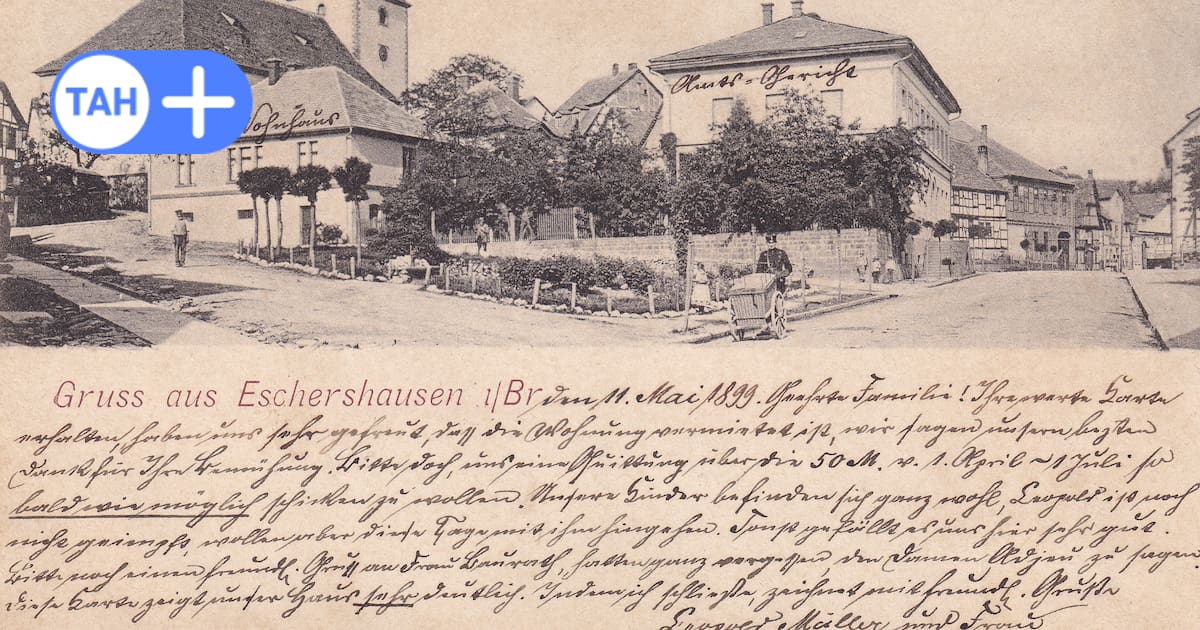 TAH +
Wohnhaus
Amts-Gericht
Gruss aus Eschershausen i/Br den 11. Mai 1899. Geehrte Familie! Ihre werte Karte
erhalten, haben uns sehr gefreut, daß die Wohnung vermietet ist, wir sagen unsern besten
Dank für Ihre Bemühung. Bitte doch, uns eine Quittung über die 50 M. v. 1. April – 1 Juli so
bald wie möglich schicken zu wollen. Unsere Kinder befinden sich ganz wohl, Leopold ist noch
nicht geimpft, wollen aber diese Tage mit ihm hingehen. Sonst gefällt es uns hier sehr gut.
Bitte noch einen freundl. Gruß an Frau Baurath, hatten ganz vergessen den Damen Adjeu zu sagen.
Diese Karte zeigt unser Haus sehr deutlich. Indem ich schließe, zeichnet mit freundl. Grüße
Leopold Müller und Frau